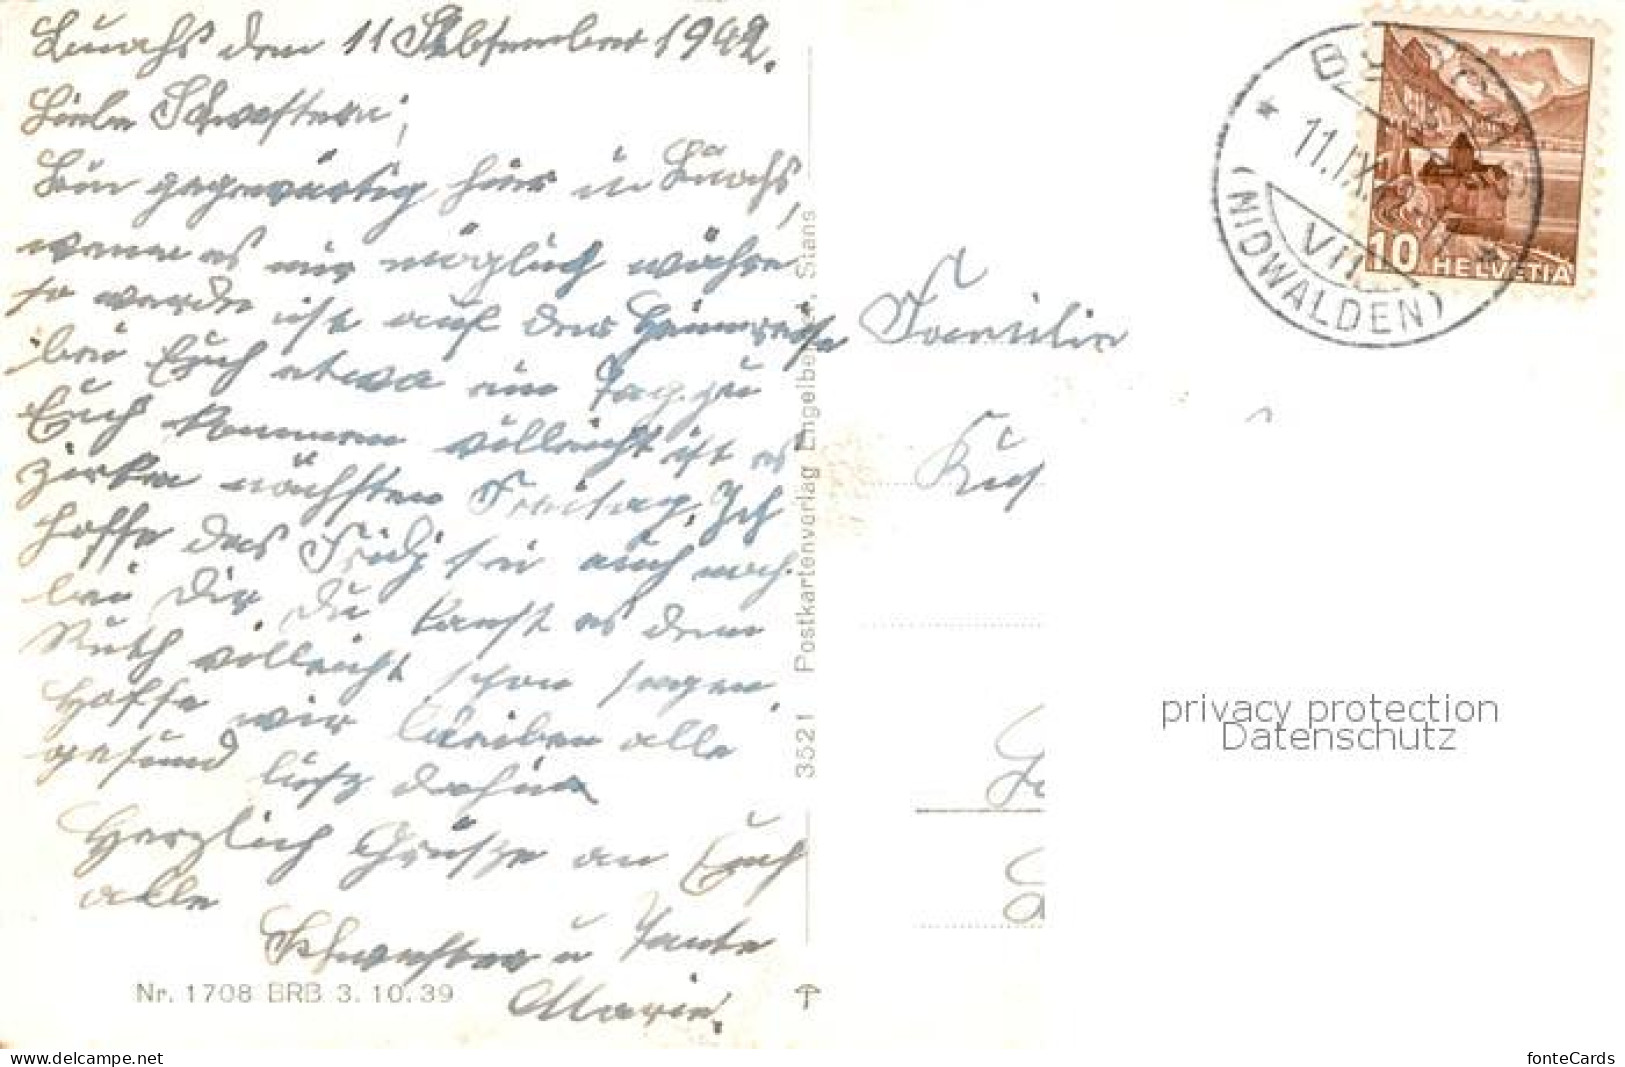 Buochs den 11 September 1942.
Liebe Schwestern,
Bin gegenwärtig hier in Buochs,
wenn es mir möglich währe
so werde ich auf der Heimreise
bei Euch etwa ein Tag zu
Euch kommen villeicht ist es
zirka nächsten Freitag. Ich
hoffe das Fridj sei auch noch
bei Dir, Du kanst es dem
Ruth villeicht schon sagen.
Hoffe wir bleiben alle
gesund bis dahin
Herzlich Grüsse an Euch
alle
Schwester u Tante
Marie.
Nr. 1708 BRB 3.10.39
3521 Postkartenverlag Engelberger, Stans
Familie
BUOCHS
11.IX.42
VIII
(NIDWALDEN)
10 HELVETIA
privacy protection
Datenschutz
www.delcampe.net
fonteCards